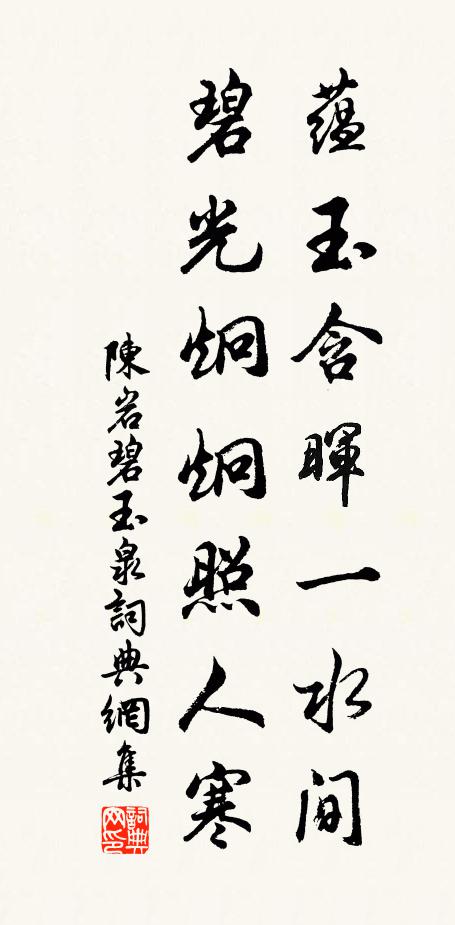 蕴玉含暉一水间
碧光炯炯照人寒
陳岩碧玉泉詞典網集
詞典网印